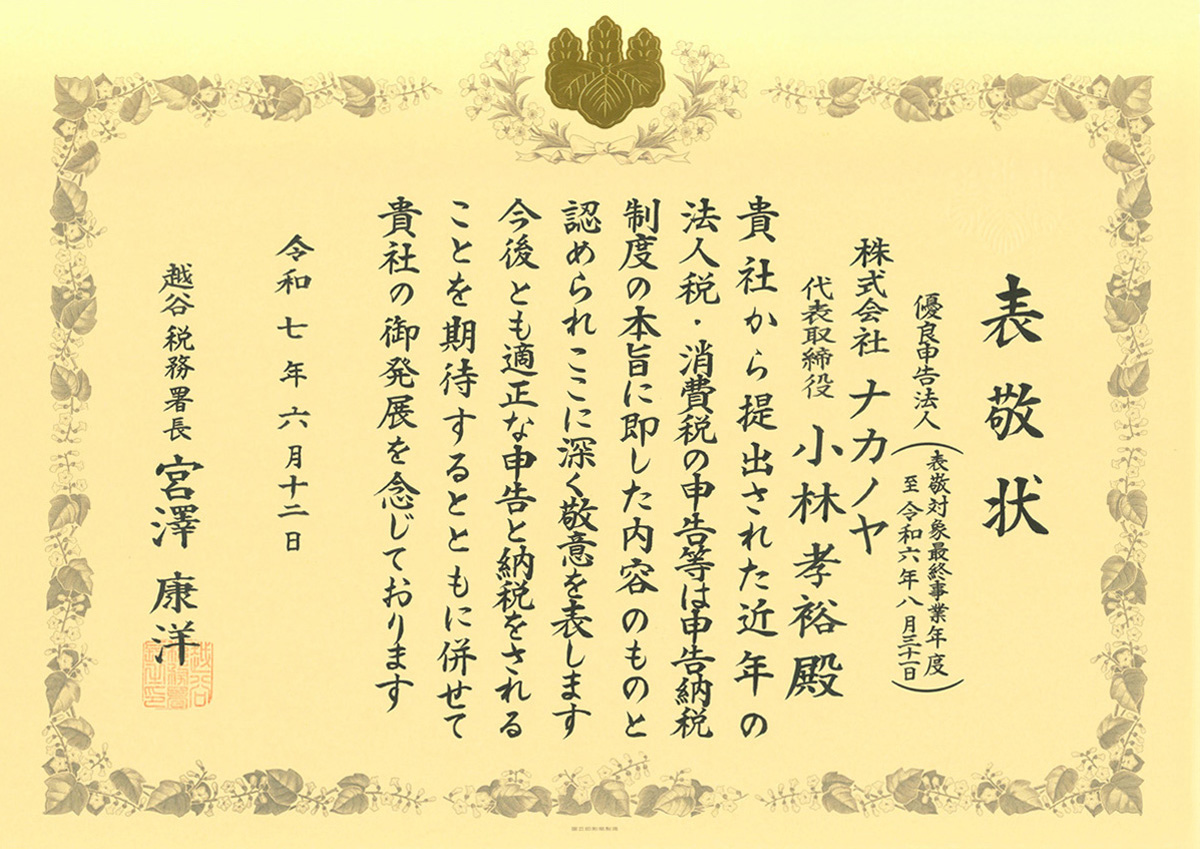 表敬状
優良申告法人
（表敬対象最終事業年度
至令和六年八月三十一日）
株式会社ナカノヤ
代表取締役 小林孝裕殿
貴社から提出された近年の
法人税・消費税の申告等は申告納税
制度の本旨に即した内容のものと
認められここに深く敬意を表します
今後とも適正な申告と納税をされる
ことを期待するとともに併せて
貴社の御発展を念じております
令和七年六月十二日
越谷税務署長 宮澤康洋